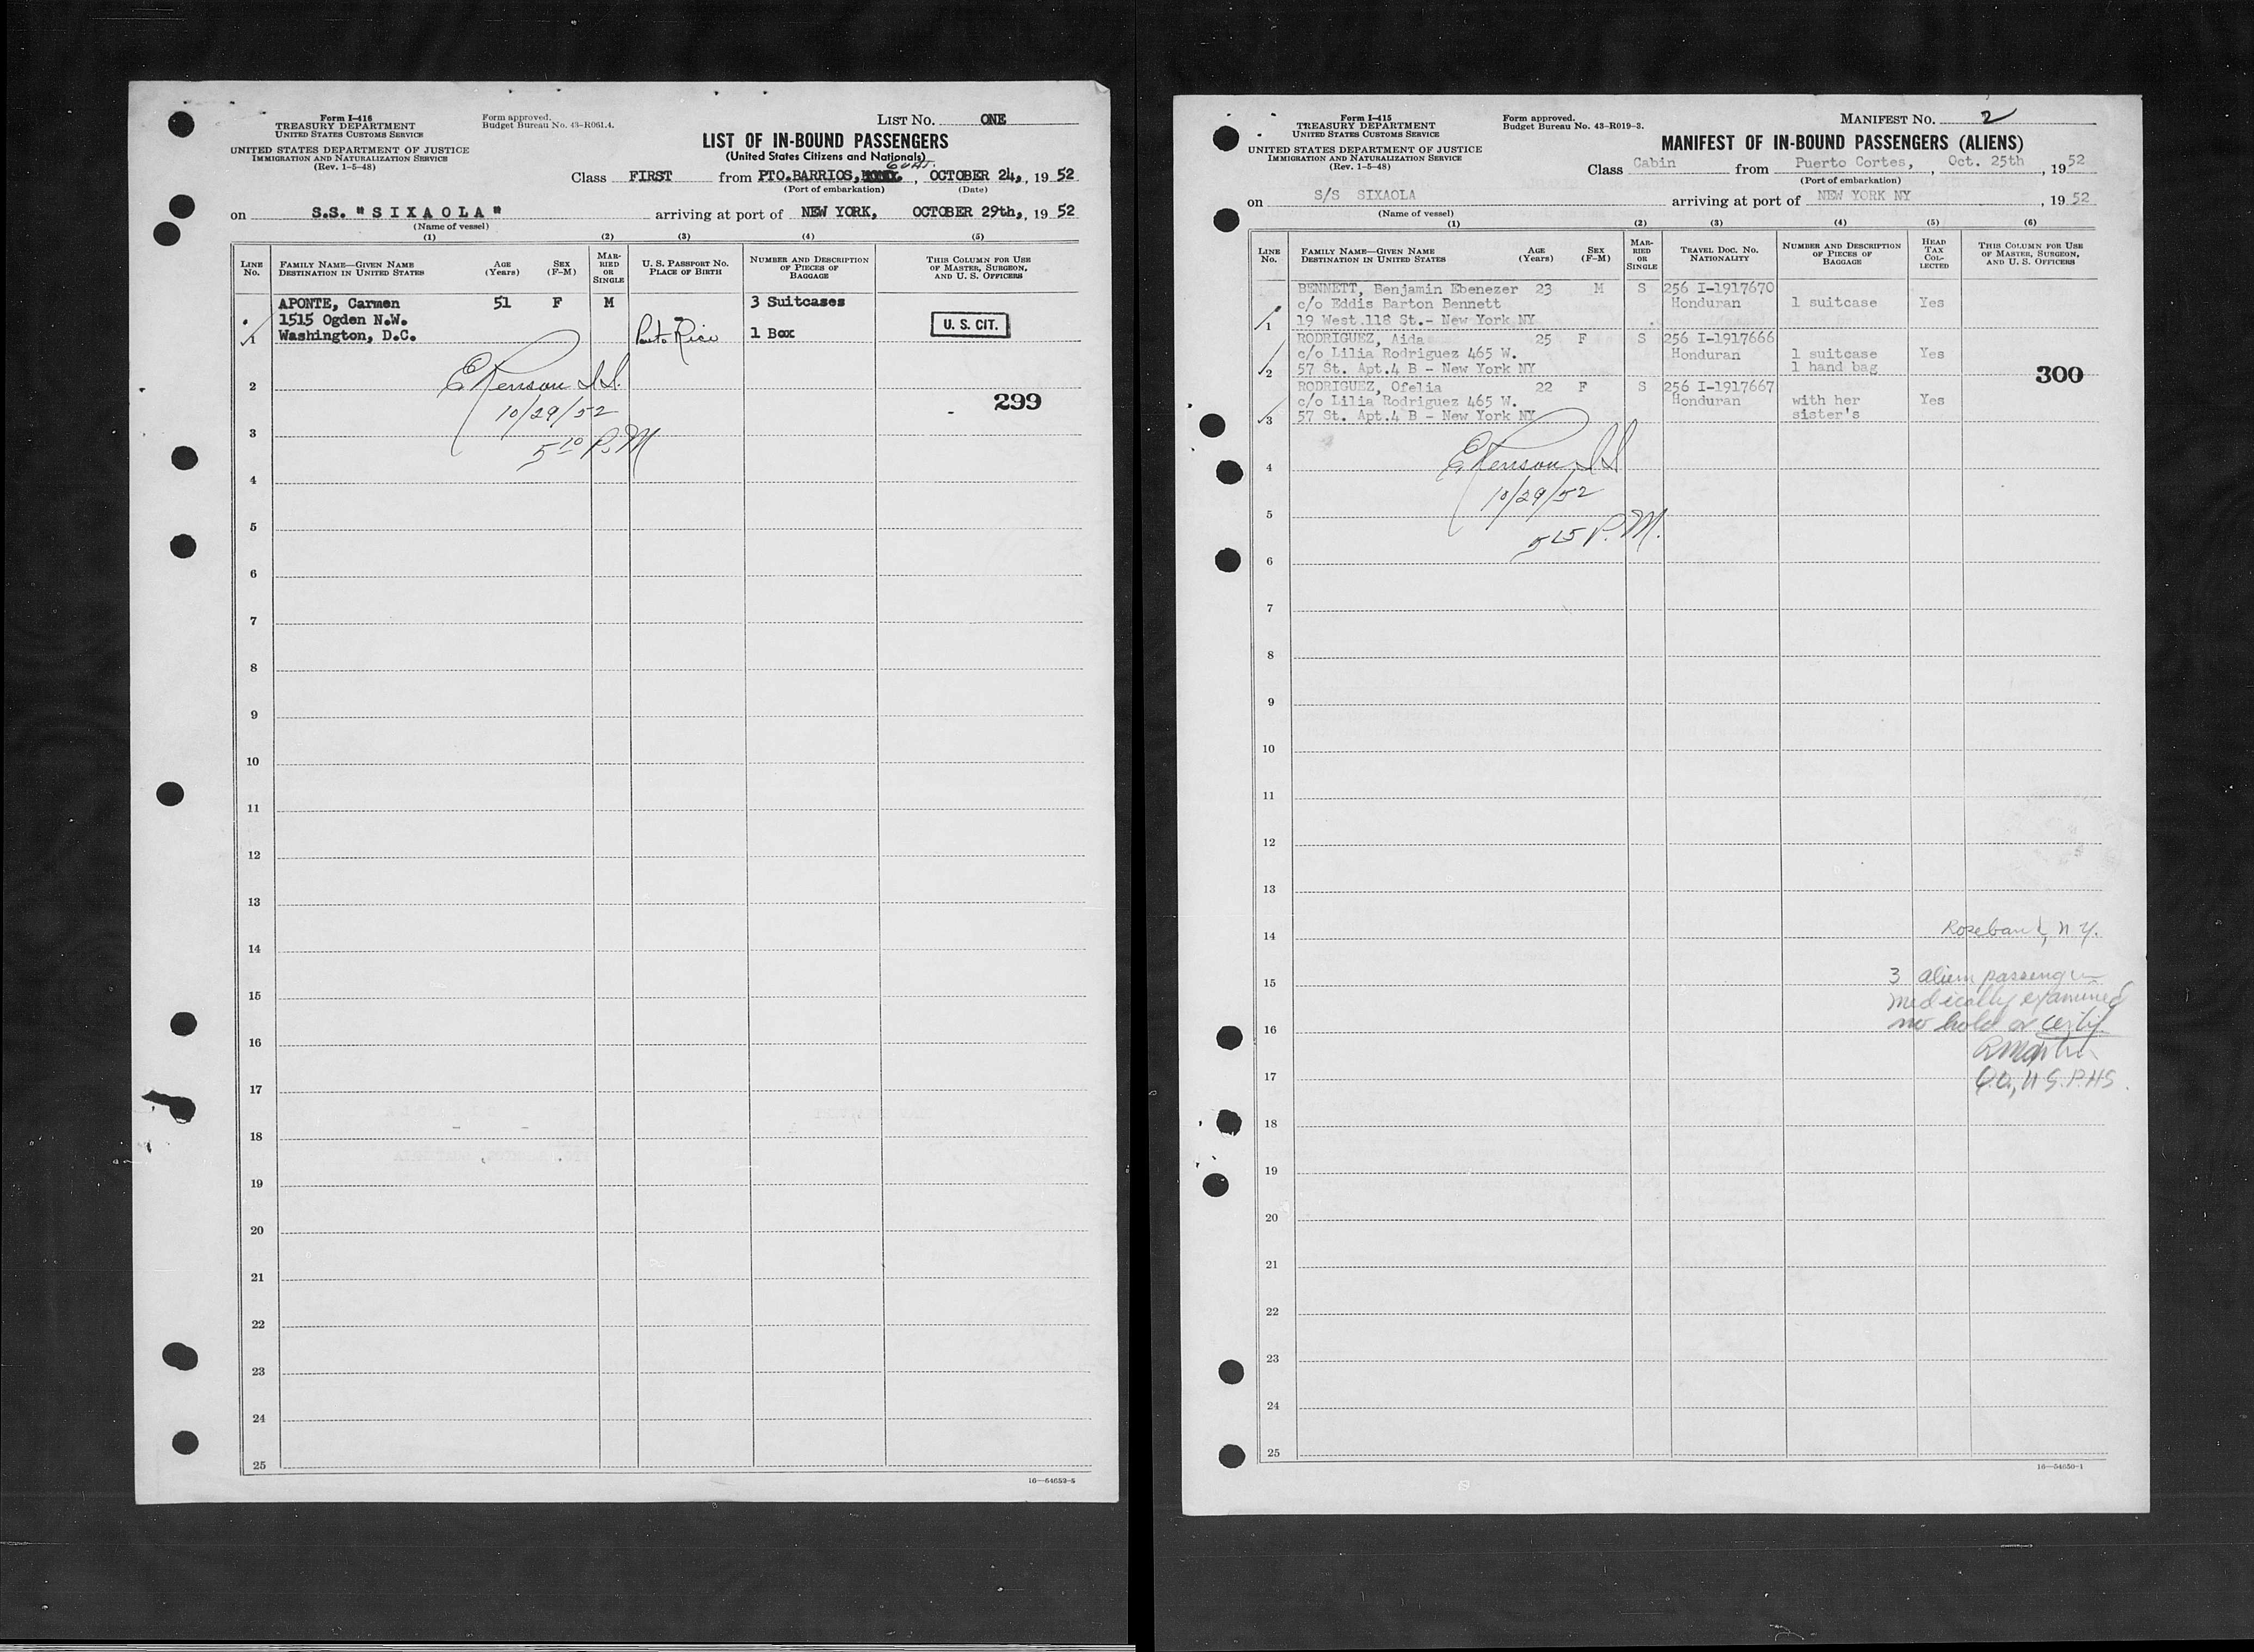 Form I-416
TREASURY DEPARTMENT
UNITED STATES CUSTOMS SERVICE
UNITED STATES DEPARTMENT OF JUSTICE
IMMIGRATION AND NATURALIZATION SERVICE
(Rev. 1-5-48)
Form approved.
Budget Bureau No. 43-R061.4.
LIST No. ONE
LIST OF IN-BOUND PASSENGERS
(United States Citizens and Nationals)
GUAT.
Class FIRST from PTO.BARRIOS, , OCTOBER 24, , 19 52
(Port of embarkation) (Date)
on S.S. "S I X A O L A" arriving at port of NEW YORK, OCTOBER 29th, , 19 52
(Name of vessel)
(1) (2) (3) (4) (5)
LINE No. FAMILY NAME—GIVEN NAME DESTINATION IN UNITED STATES AGE (Years) SEX (F-M) MARRIED OR SINGLE U. S. PASSPORT NO. PLACE OF BIRTH NUMBER AND DESCRIPTION OF PIECES OF BAGGAGE THIS COLUMN FOR USE OF MASTER, SURGEON, AND U. S. OFFICERS
APONTE, Carmen 51 F M 3 Suitcases
1515 Ogden N.W. U. S. CIT.
1 Washington, D.C. Puerto Rico 1 Box
2
10/29/52 299
3
5 10 P.M
4
5
6
7
8
9
10
11
12
13
14
15
16
17
18
19
20
21
22
23
24
25
16—54652-5
Form I-415
TREASURY DEPARTMENT
UNITED STATES CUSTOMS SERVICE
UNITED STATES DEPARTMENT OF JUSTICE
IMMIGRATION AND NATURALIZATION SERVICE
(Rev. 1-5-48)
Form approved.
Budget Bureau No. 43-R019-3.
MANIFEST No. 2
MANIFEST OF IN-BOUND PASSENGERS (ALIENS)
Class Cabin from Puerto Cortes, , Oct. 25th , 19 52
(Port of embarkation)
on S/S SIXAOLA arriving at port of NEW YORK NY , 19 52
(Name of vessel)
(1) (2) (3) (4) (5) (6)
LINE No. FAMILY NAME—GIVEN NAME DESTINATION IN UNITED STATES AGE (Years) SEX (F-M) MARRIED OR SINGLE TRAVEL DOC. NO. NATIONALITY NUMBER AND DESCRIPTION OF PIECES OF BAGGAGE HEAD TAX COLLECTED THIS COLUMN FOR USE OF MASTER, SURGEON, AND U. S. OFFICERS
BENNETT, Benjamin Ebenezer 23 M S 256 I-1917670
c/o Eddis Barton Bennett Honduran 1 suitcase Yes
1 19 West 118 St.- New York NY
RODRIGUEZ, Aida 25 F S 256 I-1917666
c/o Lilia Rodriguez 465 W. Honduran 1 suitcase Yes
2 57 St. Apt.4 B - New York NY 1 hand bag 300
RODRIGUEZ, Ofelia 22 F S 256 I-1917667
c/o Lilia Rodriguez 465 W. Honduran with her Yes
3 57 St. Apt.4 B - New York NY sister's
4
10/29/52
5
5 15 P.M.
6
7
8
9
10
11
12
13
14 Rosebank, N.Y.
15 3 alien passengers
medically examined
16 no hold or certif.
17 U.S.P.H.S.
18
19
20
21
22
23
24
25
16—54650-1